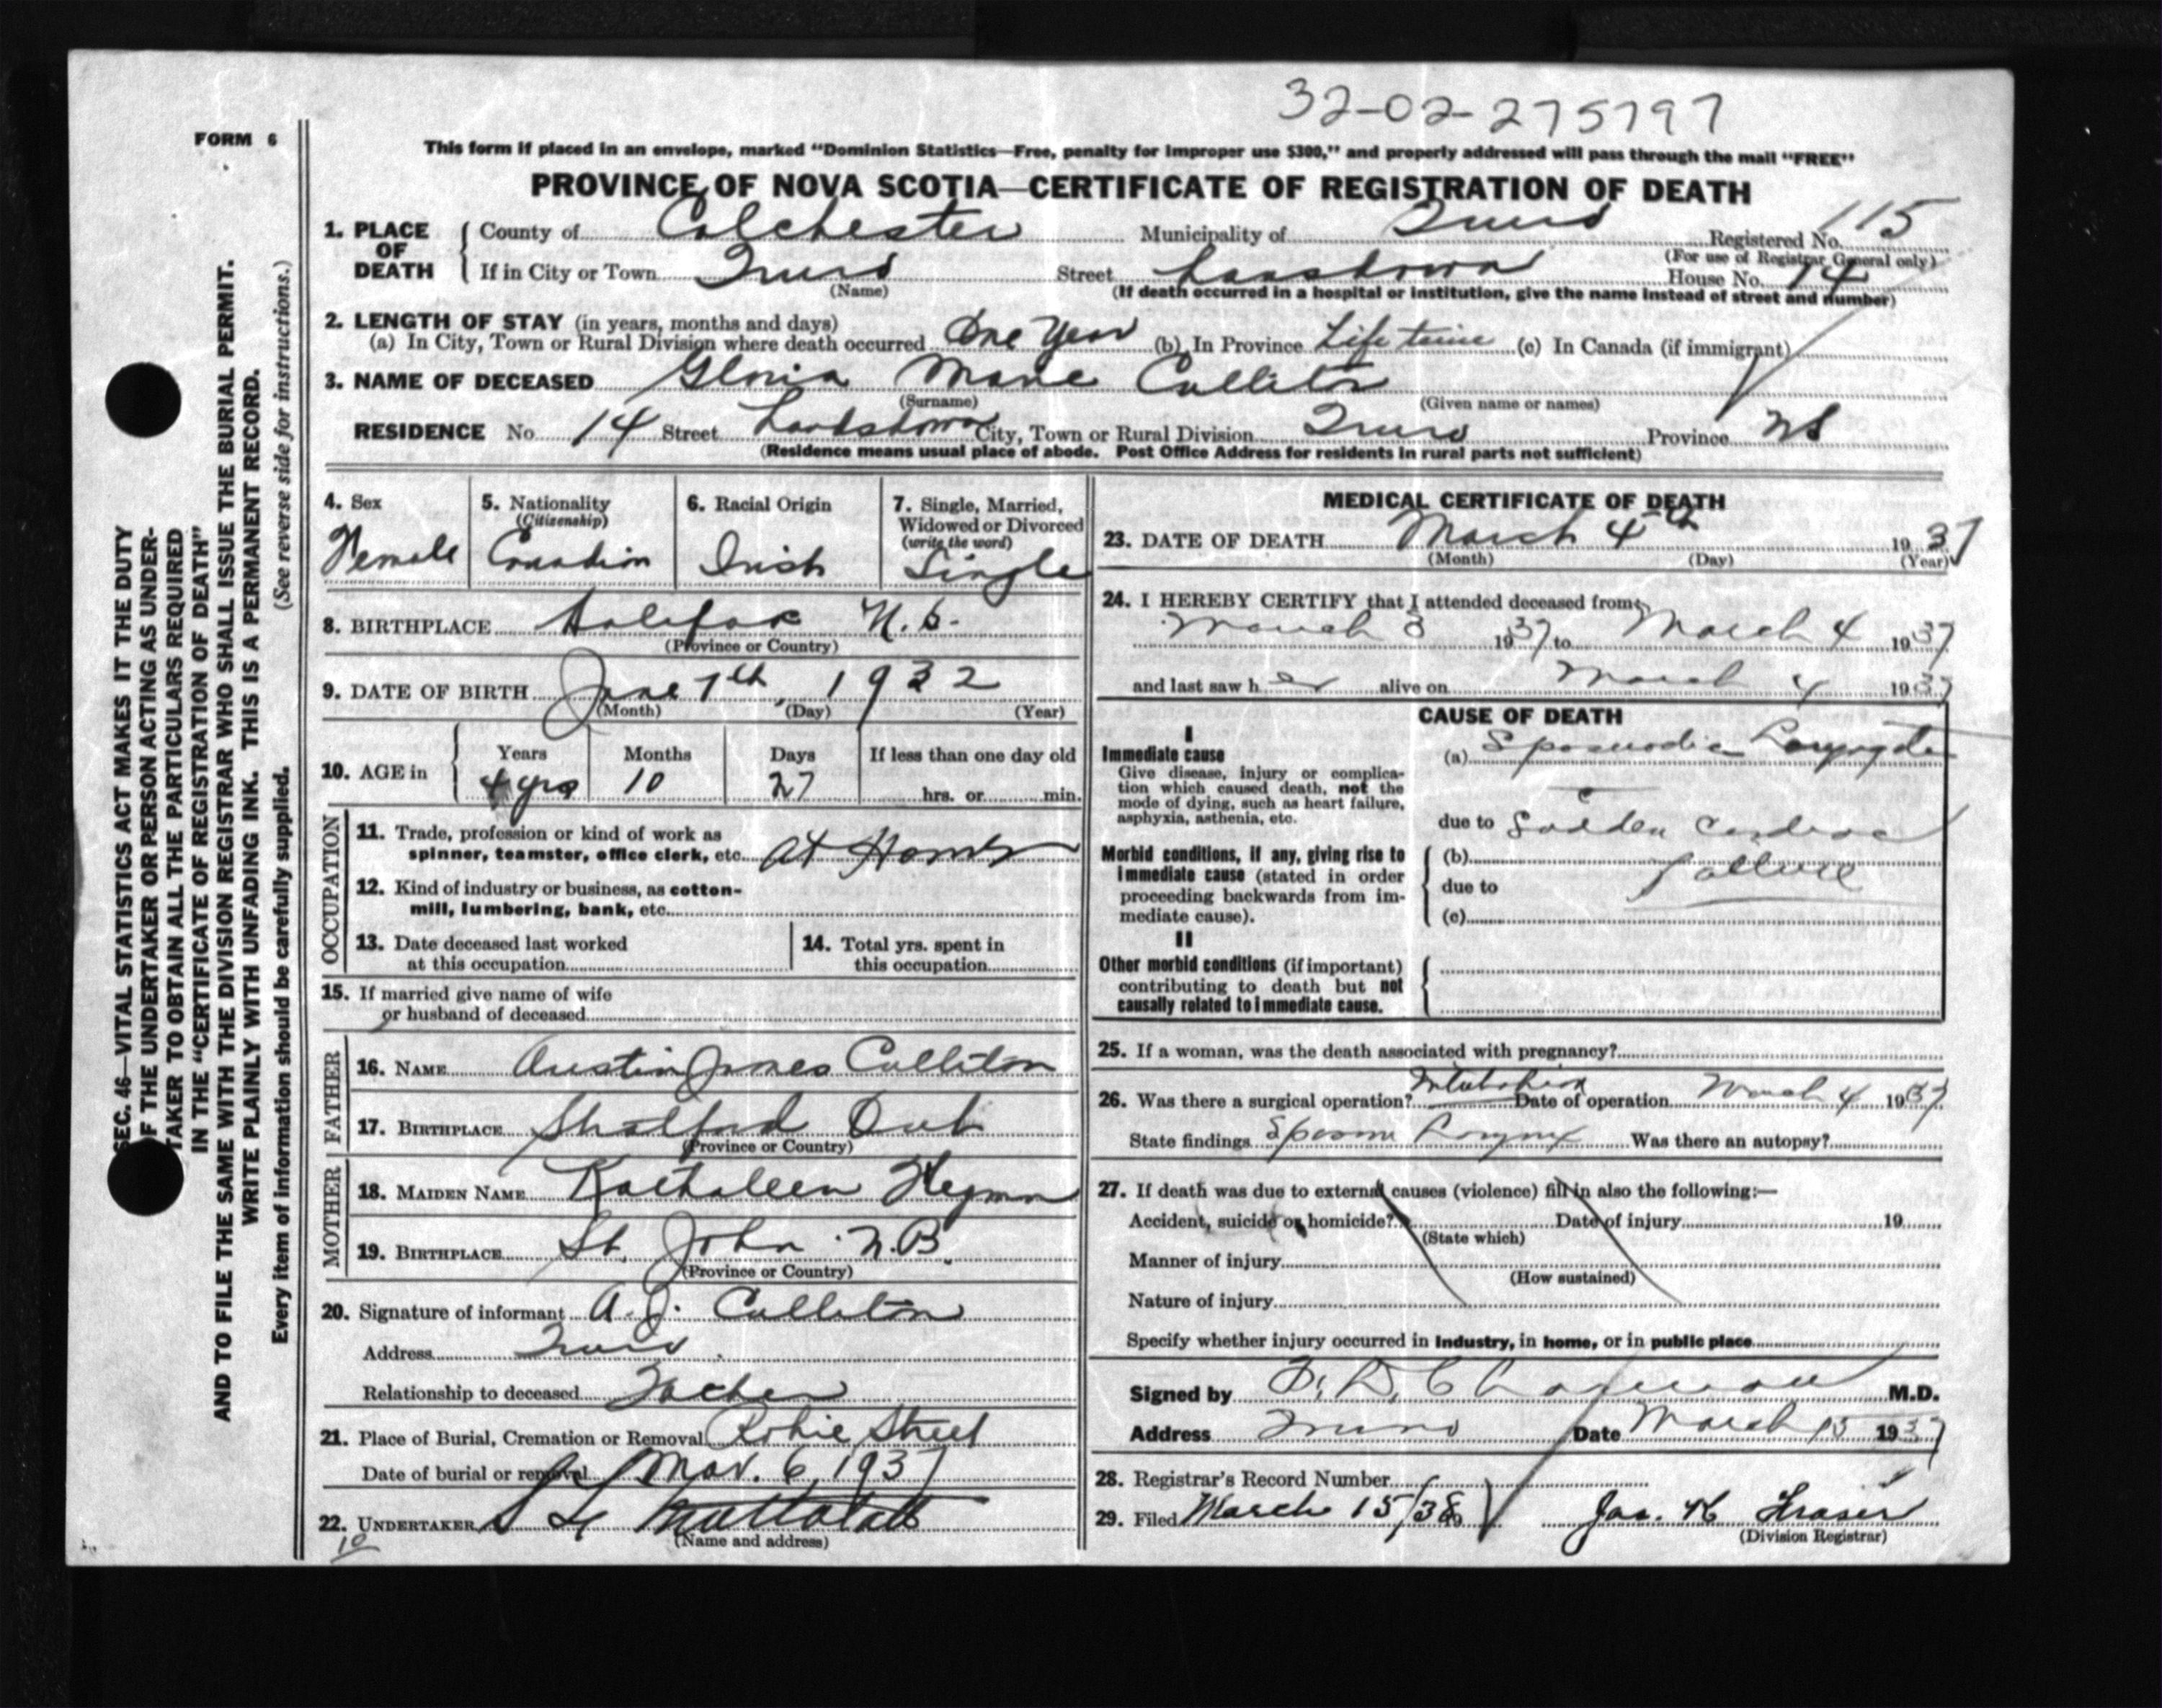 32-02-275797
FORM 6
This form if placed in an envelope, marked "Dominion Statistics—Free, penalty for improper use $300," and properly addressed will pass through the mail "FREE"
PROVINCE OF NOVA SCOTIA—CERTIFICATE OF REGISTRATION OF DEATH
1. PLACE OF DEATH County of Colchester Municipality of Truro Registered No. 115
(For use of Registrar General only)
If in City or Town Truro Street Lansdown House No. 14
(Name) (If death occurred in a hospital or institution, give the name instead of street and number)
2. LENGTH OF STAY (in years, months and days)
(a) In City, Town or Rural Division where death occurred One Year (b) In Province Life time (c) In Canada (if immigrant)
3. NAME OF DECEASED Gloria Marie Culliton
(Surname) (Given name or names)
RESIDENCE No. 14 Street Landsdown City, Town or Rural Division Truro Province NS
(Residence means usual place of abode. Post Office Address for residents in rural parts not sufficient)
4. Sex Female
5. Nationality (Citizenship) Canadian
6. Racial Origin Irish
7. Single, Married, Widowed or Divorced (write the word) Single
8. BIRTHPLACE Halifax N.S.
(Province or Country)
9. DATE OF BIRTH June 7th, 1932
(Month) (Day) (Year)
10. AGE in Years 4 yrs Months 10 Days 27 If less than one day old hrs. or min.
OCCUPATION
11. Trade, profession or kind of work as
spinner, teamster, office clerk, etc. At Home
12. Kind of industry or business, as cotton-
mill, lumbering, bank, etc.
13. Date deceased last worked
at this occupation
14. Total yrs. spent in
this occupation
15. If married give name of wife
or husband of deceased
FATHER
16. NAME Austin James Culliton
17. BIRTHPLACE Stratford Ont
(Province or Country)
MOTHER
18. MAIDEN NAME Kathaleen
19. BIRTHPLACE St. John N.B.
(Province or Country)
20. Signature of informant A. J. Culliton
Address Truro
Relationship to deceased Father
21. Place of Burial, Cremation or Removal Robie Street
Date of burial or removal Mar. 6, 1937
22. UNDERTAKER
(Name and address)
10
MEDICAL CERTIFICATE OF DEATH
23. DATE OF DEATH March 4th 1937
(Month) (Day) (Year)
24. I HEREBY CERTIFY that I attended deceased from
March 3 1937 to March 4 1937
and last saw her alive on March 4 1937
CAUSE OF DEATH
I
Immediate cause
Give disease, injury or complica-
tion which caused death, not the
mode of dying, such as heart failure,
asphyxia, asthenia, etc.
(a) Spasmodic
due to Sudden Cardiac
Morbid conditions, if any, giving rise to
immediate cause (stated in order
proceeding backwards from im-
mediate cause).
(b) failure
due to
(c)
II
Other morbid conditions (if important)
contributing to death but not
causally related to immediate cause.
25. If a woman, was the death associated with pregnancy?
26. Was there a surgical operation? Intubation Date of operation March 4 1937
State findings Spasm Larynx Was there an autopsy?
27. If death was due to external causes (violence) fill in also the following:—
Accident, suicide or homicide? Date of injury 19
(State which)
Manner of injury
(How sustained)
Nature of injury
Specify whether injury occurred in industry, in home, or in public place
Signed by Chapman M.D.
Address Truro Date March 15 1937
28. Registrar's Record Number
29. Filed March 15/38 19 Jas. K Fraser
(Division Registrar)
SEC. 46—VITAL STATISTICS ACT MAKES IT THE DUTY
OF THE UNDERTAKER OR PERSON ACTING AS UNDER-
TAKER TO OBTAIN ALL THE PARTICULARS REQUIRED
IN THE "CERTIFICATE OF REGISTRATION OF DEATH"
AND TO FILE THE SAME WITH THE DIVISION REGISTRAR WHO SHALL ISSUE THE BURIAL PERMIT.
WRITE PLAINLY WITH UNFADING INK. THIS IS A PERMANENT RECORD.
Every item of information should be carefully supplied. (See reverse side for instructions.)